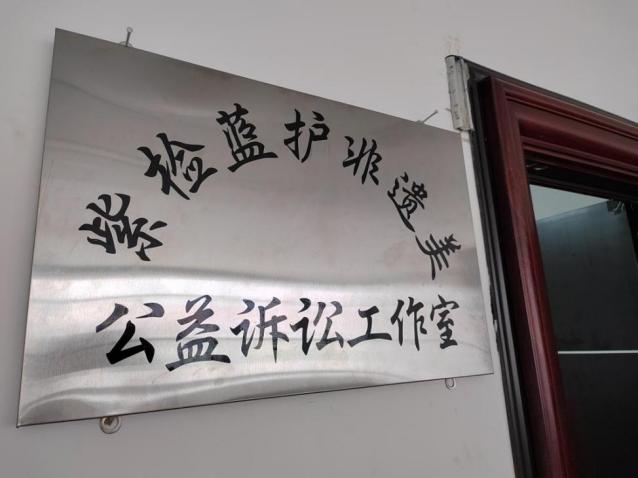 紫检蓝护非遗美
公益诉讼工作室